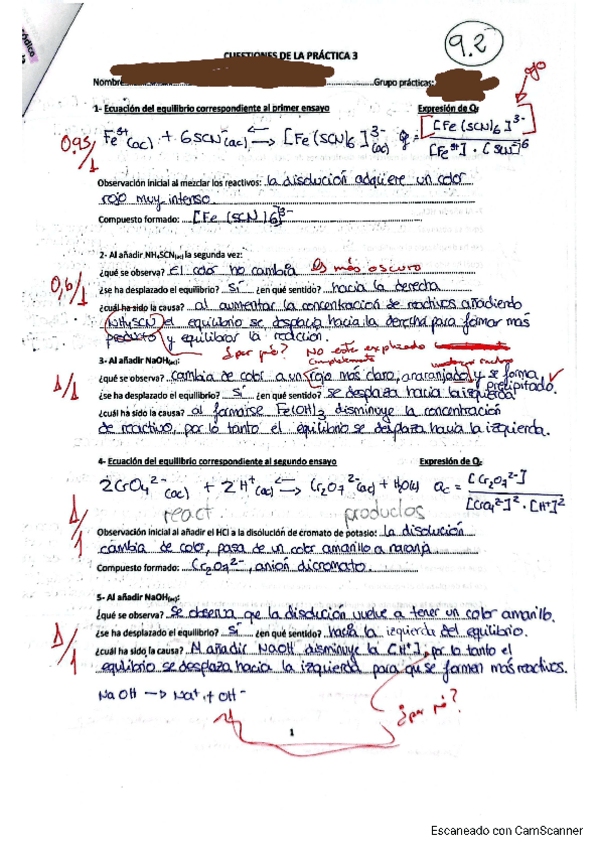 9.2
CUESTIONES DE LA PRÁCTICA 3
Nombre Grupo prácticas:
ojo
1- Ecuación del equilibrio correspondiente al primer ensayo Expresión de Qc
0.95/1
Fe3+(ac) + 6SCN-(ac) ⇄ [Fe(SCN)6]3-(ac) Q = [Fe(SCN)6]3- / [Fe3+]·[SCN-]6
Observación inicial al mezclar los reactivos: la disolución adquiere un color
rojo muy intenso.
Compuesto formado: [Fe(SCN)6]3-
2- Al añadir NH4SCN(ac) la segunda vez:
0,6/1
¿qué se observa? El color no cambia Es más oscuro
¿se ha desplazado el equilibrio? Sí ¿en qué sentido? hacia la derecha
¿cuál ha sido la causa? al aumentar la concentración de reactivos añadiendo
NH4SCN el equilibrio se desplaza hacia la derecha para formar más
producto y equilibrar la reacción.
¿por qué? No este explicado
completamente
3- Al añadir NaOH(ac):
1/1
¿qué se observa? cambia de color a un rojo más claro, anaranjado y se forma
precipitado.
¿se ha desplazado el equilibrio? Sí ¿en qué sentido? se desplaza hacia la izquierda
¿cuál ha sido la causa? al formarse Fe(OH)3 disminuye la concentración
de reactivo, por lo tanto el equilibrio se desplaza hacia la izquierda.
4- Ecuación del equilibrio correspondiente al segundo ensayo Expresión de Qc
2CrO42-(ac) + 2H+(ac) ⇄ Cr2O72-(ac) + H2O(l) Qc = [Cr2O72-] / [CrO42-]2·[H+]2
react. productos
1/1
Observación inicial al añadir el HCl a la disolución de cromato de potasio: la disolución
cambia de color, pasa de un color amarillo a naranja
Compuesto formado: Cr2O72-, anión dicromato.
5- Al añadir NaOH(ac):
1/1
¿qué se observa? Se observa que la disolución vuelve a tener un color amarillo.
¿se ha desplazado el equilibrio? Sí ¿en qué sentido? hacia la izquierda del equilibrio.
¿cuál ha sido la causa? Al añadir NaOH disminuye la [H+], por lo tanto el
equilibrio se desplaza hacia la izquierda para que se forman más reactivos.
NaOH → Na+ + OH-
¿por qué?
1
Escaneado con CamScanner